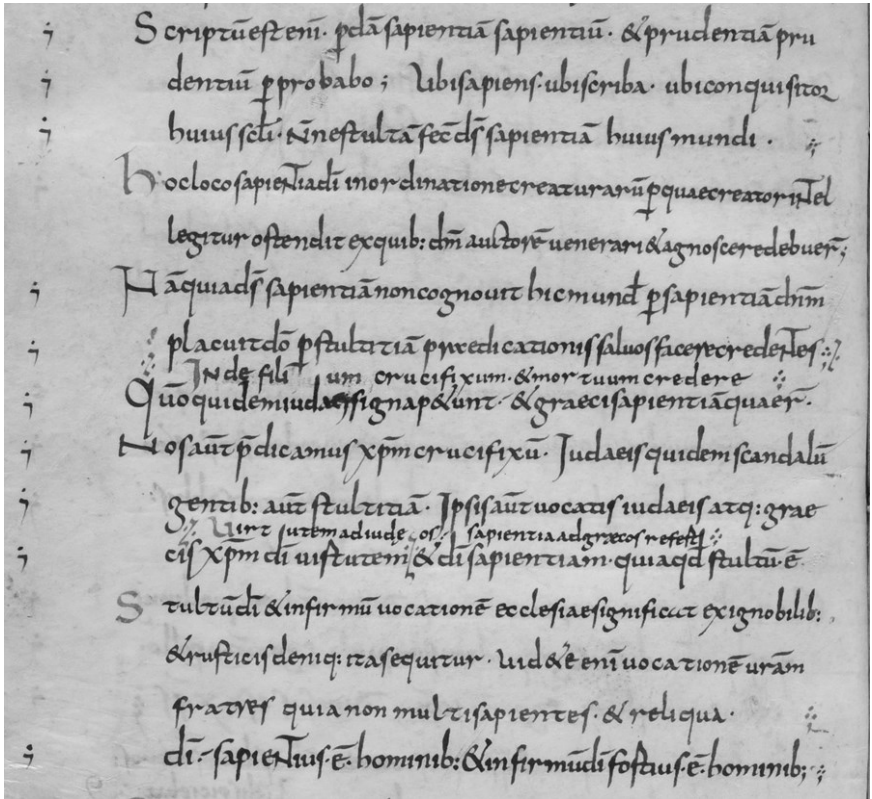 Scriptū est enī· ꝑdā sapientiā sapientiū· & prudentiā pru
dentiū ꝑprobabo; Ubi sapiens· ubi scriba· ubi conquisitor
huius scłi· Nñe stultā fec̄ d̄s sapientiā huius mundi·
hoc loco sapientia d̄i in ordinatione creaturarū ꝑ quae creator intel
legitur ostendit ex quib: d̄m auctorē venerari & agnoscere debuer̄;
Nā quia d̄s sapientiā non cognovit hic mund̄ ꝑ sapientiā d̄nm
placuit d̄o ꝑ stultitiā praedicationis salvos facere credentes
Inde filium crucifixum· & mortuum credere
Qūo quidem iudaei signa p&unt· & graeci sapientiā quaer̄·
Nos aūt p̄dicamus xp̄m crucifixū· Iudaeis quidem scandalū
gentib: aūt stultitiā· Ipsis aūt vocatis iudaeis atq: grae
Virtutem ad iudeos sapientia ad grecos refert
cis xp̄m d̄i virtutem & d̄i sapientiam· quia qđ stultū ē
Stultū d̄i & infirmū vocationē ecclesiae significat ex ignobilib:
& rusticis deniq: ita sequitur· Uid&e enī vocationē vr̄am
fratres quia non multi sapientes· & reliqua·
d̄i· sapientius· ē· hominib: & infirmū d̄i fortius· ē· hominib;